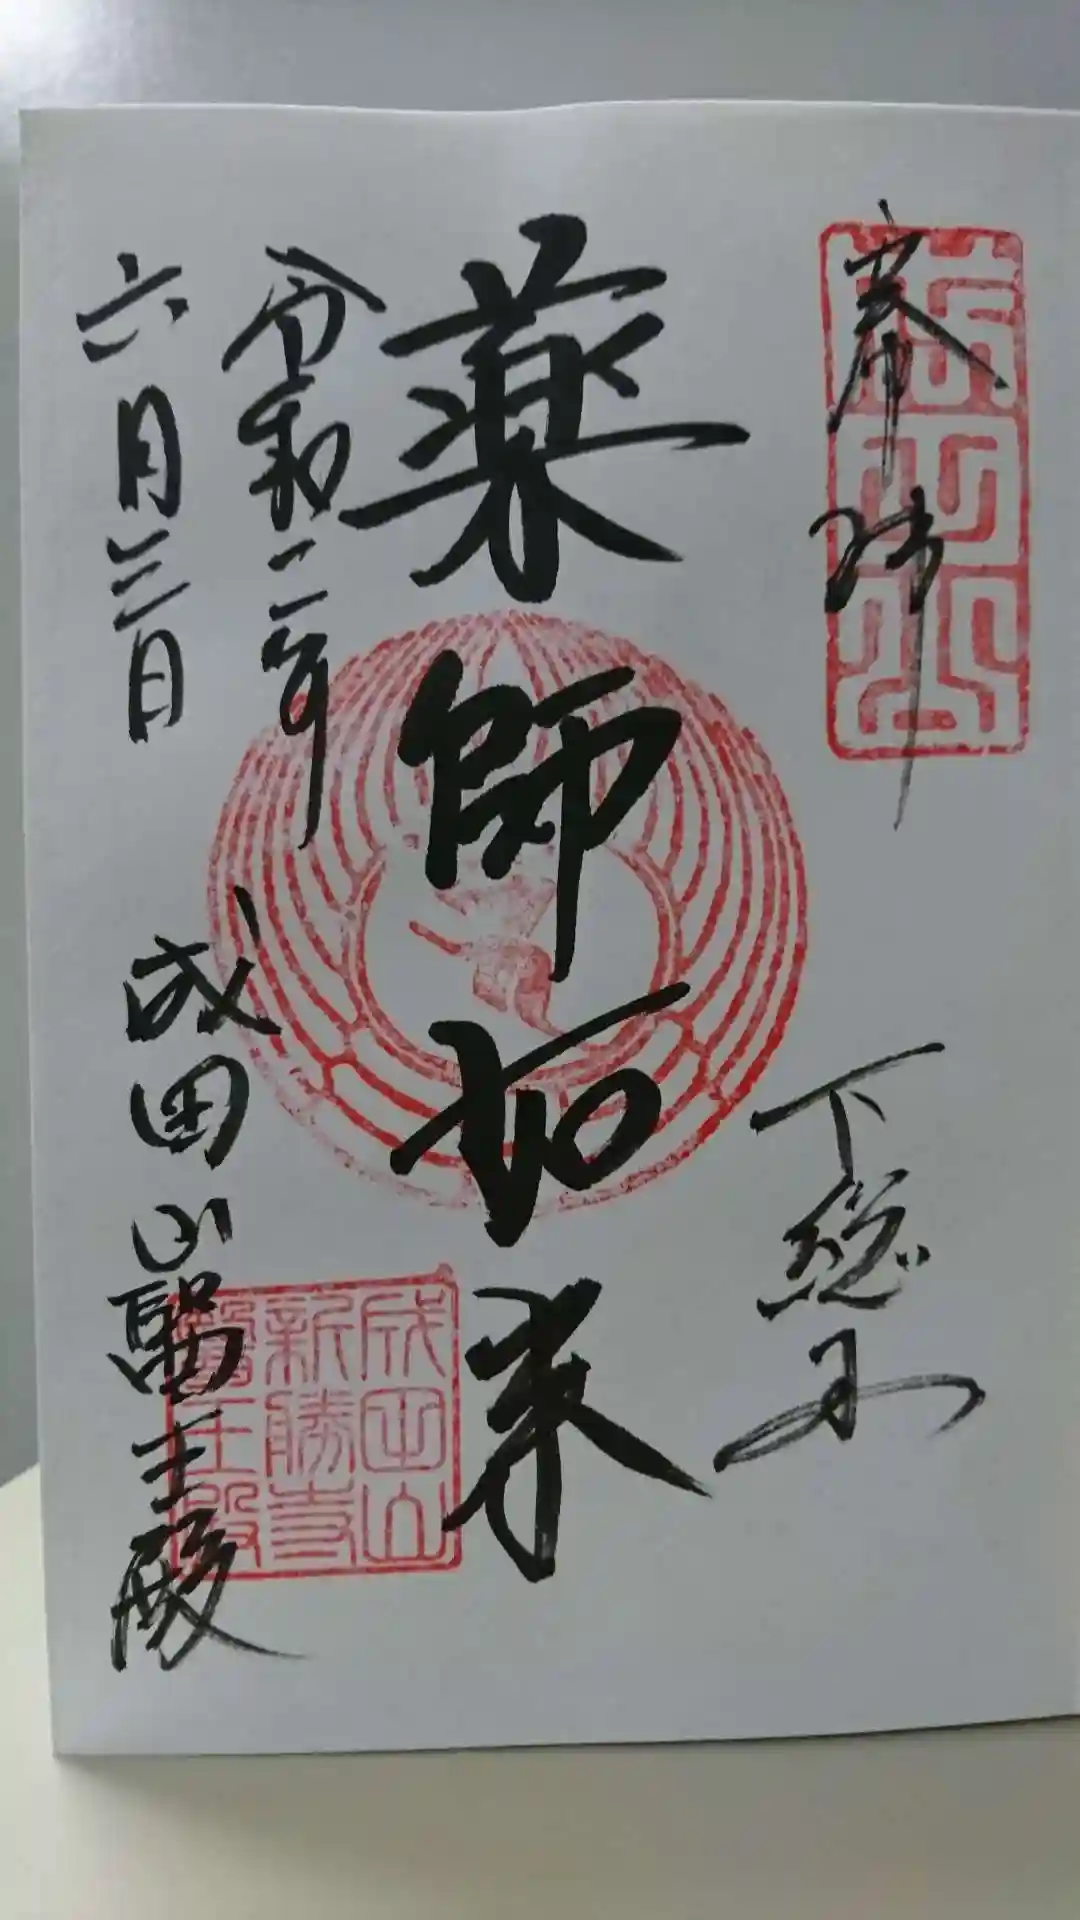 奉拝
下総国
薬師如来
令和二年
六月三日
成田山醫王殿
成田山
新勝寺
醫王殿